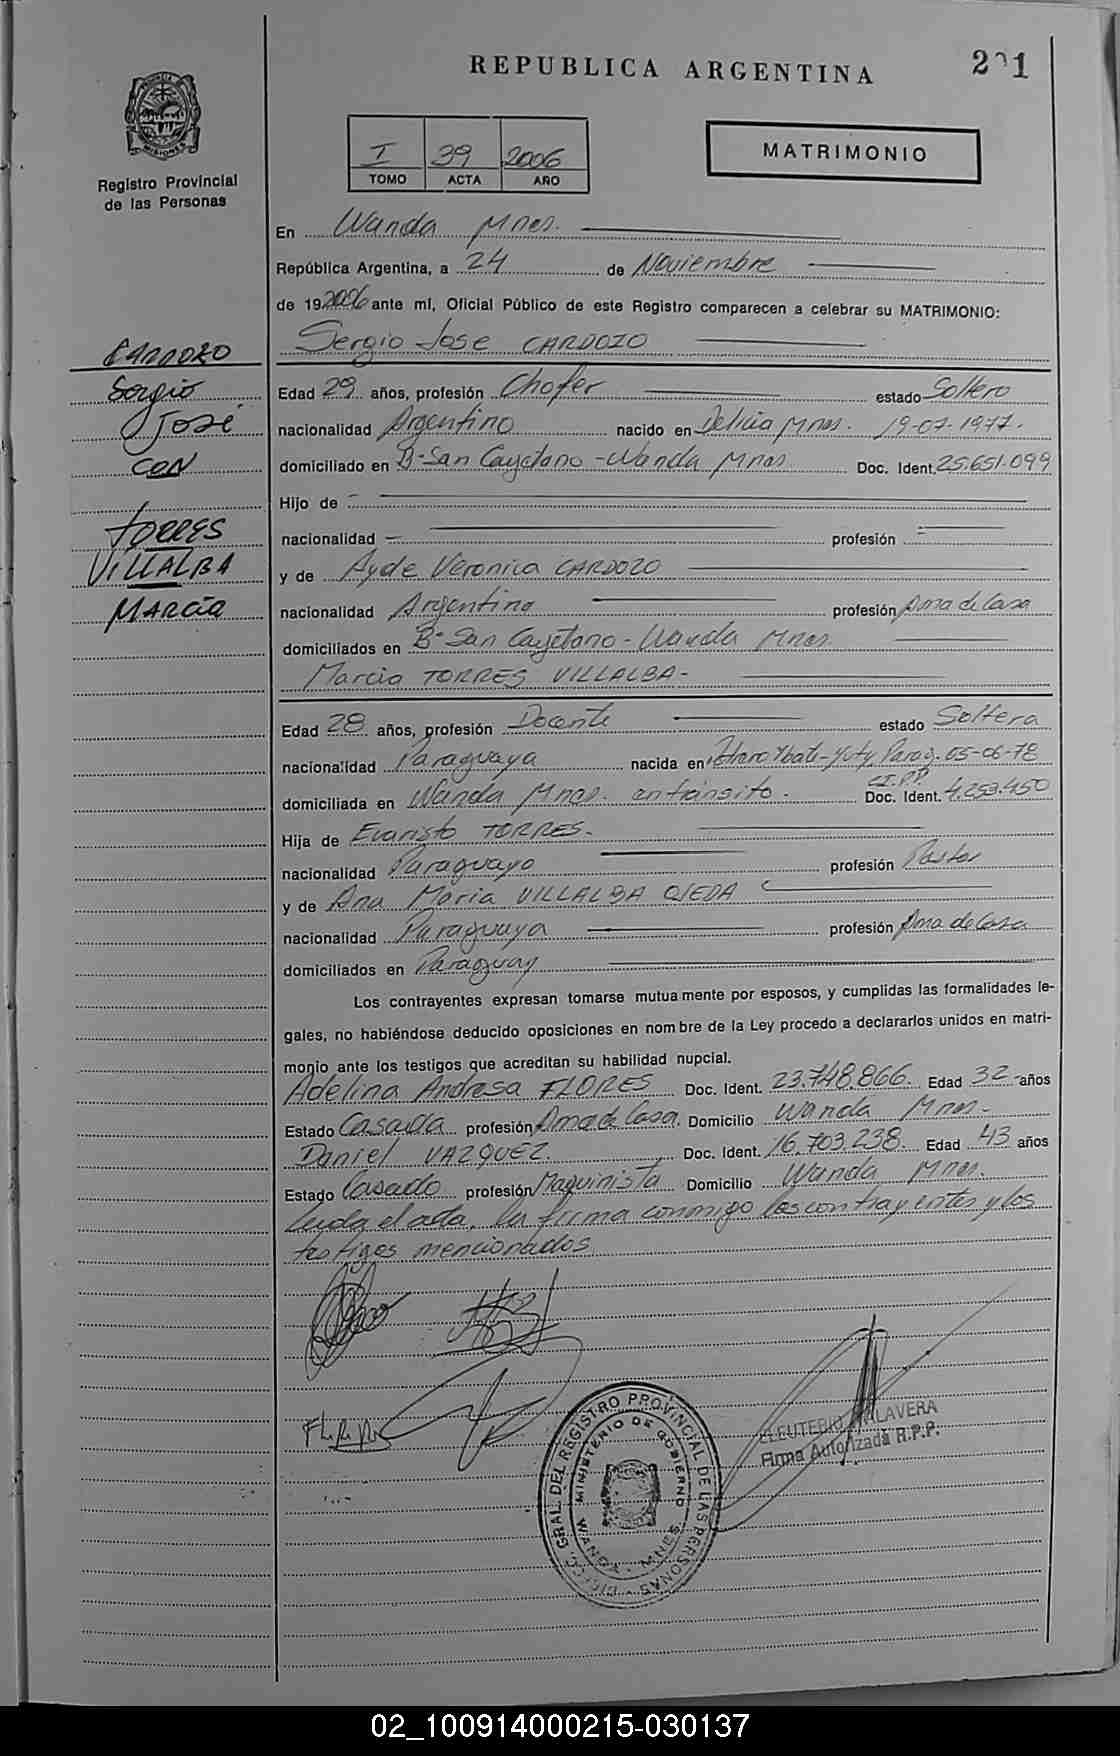 REPUBLICA ARGENTINA
201
PROVINCIA DE MISIONES
Registro Provincial
de las Personas
I 39 2006
TOMO ACTA AÑO
MATRIMONIO
En Wanda Mnes.
República Argentina, a 24 de Noviembre
de 19 2006 ante mí, Oficial Público de este Registro comparecen a celebrar su MATRIMONIO:
Sergio Jose CARDOZO
CARDOZO
Sergio
José
CON
TORRES
VILLALBA
MARCIA
Edad 29 años, profesión Chofer estado Soltero
nacionalidad Argentino nacido en Delicia Mnes. 19-07-1977.
domiciliado en B° San Cayetano - Wanda Mnes. Doc. Ident. 25.651.099
Hijo de -
nacionalidad - profesión -
y de Ayde Veronica CARDOZO
nacionalidad Argentina profesión Ama de Casa
domiciliados en B° San Cayetano - Wanda Mnes.
Marcia TORRES VILLALBA-
Edad 28 años, profesión Docente estado Soltera
nacionalidad Paraguaya nacida en Ybate-Yuty, Parag. 05-06-78
domiciliada en Wanda Mnes. en tránsito. CI.PP. Doc. Ident. 4.253.450
Hija de Evaristo TORRES.
nacionalidad Paraguayo profesión Pastor
y de Ana Maria VILLALBA OJEDA
nacionalidad Paraguaya profesión Ama de Casa
domiciliados en Paraguay
Los contrayentes expresan tomarse mutuamente por esposos, y cumplidas las formalidades le-
gales, no habiéndose deducido oposiciones en nombre de la Ley procedo a declararlos unidos en matri-
monio ante los testigos que acreditan su habilidad nupcial.
Adelina Andresa FLORES Doc. Ident. 23.748.866. Edad 32 años
Estado Casada profesión Ama de Casa. Domicilio Wanda Mnes.
Daniel VAZQUEZ. Doc. Ident. 16.703.238. Edad 43 años
Estado Casado profesión Maquinista Domicilio Wanda Mnes.
Leida el acta, la firma conmigo los contrayentes y los
testigos mencionados
DIREC. GRAL. DEL REGISTRO PROVINCIAL DE LAS PERSONAS
MINISTERIO DE GOBIERNO
WANDA - MNES
ELEUTERIO VILAVERA
Firma Autorizada R.P.P.
02_100914000215-030137